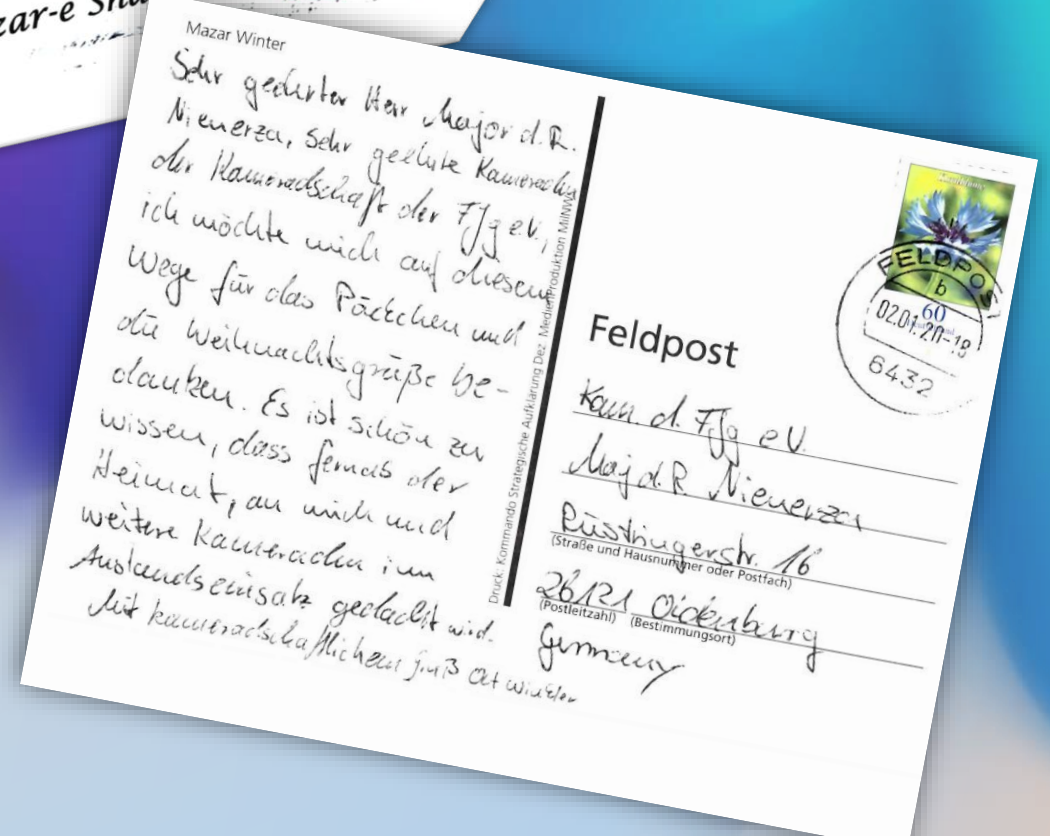 zar-e
Mazar Winter
Sehr geehrter Herr Major d.R.
Nienerza, sehr geehrte Kameraden
der Kameradschaft der FJg e.V.,
ich möchte mich auf diesem
Wege für das Päckchen und
die Weihnachtsgrüße be-
danken. Es ist schön zu
wissen, dass fernab der
Heimat, an mich und
weitere Kameraden im
Auslandseinsatz gedacht wird.
Mit kameradschaftlichem Gruß OLt Winkler
Druck: Kommando Strategische Aufklärung Dez. MedienProduktion MilNW
FELDPOST
b
60
02.01.20-18
6432
Feldpost
Kam. d. FJg e.V.
Maj d.R. Nienerza
Rüstringerstr. 16
(Straße und Hausnummer oder Postfach)
26121 Oldenburg
(Postleitzahl) (Bestimmungsort)
Germany